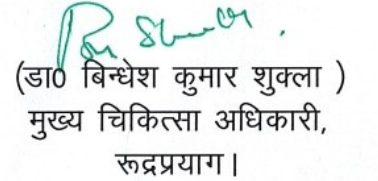 (डा0 बिन्धेश कुमार शुक्ला )
मुख्य चिकित्सा अधिकारी,
रूद्रप्रयाग।